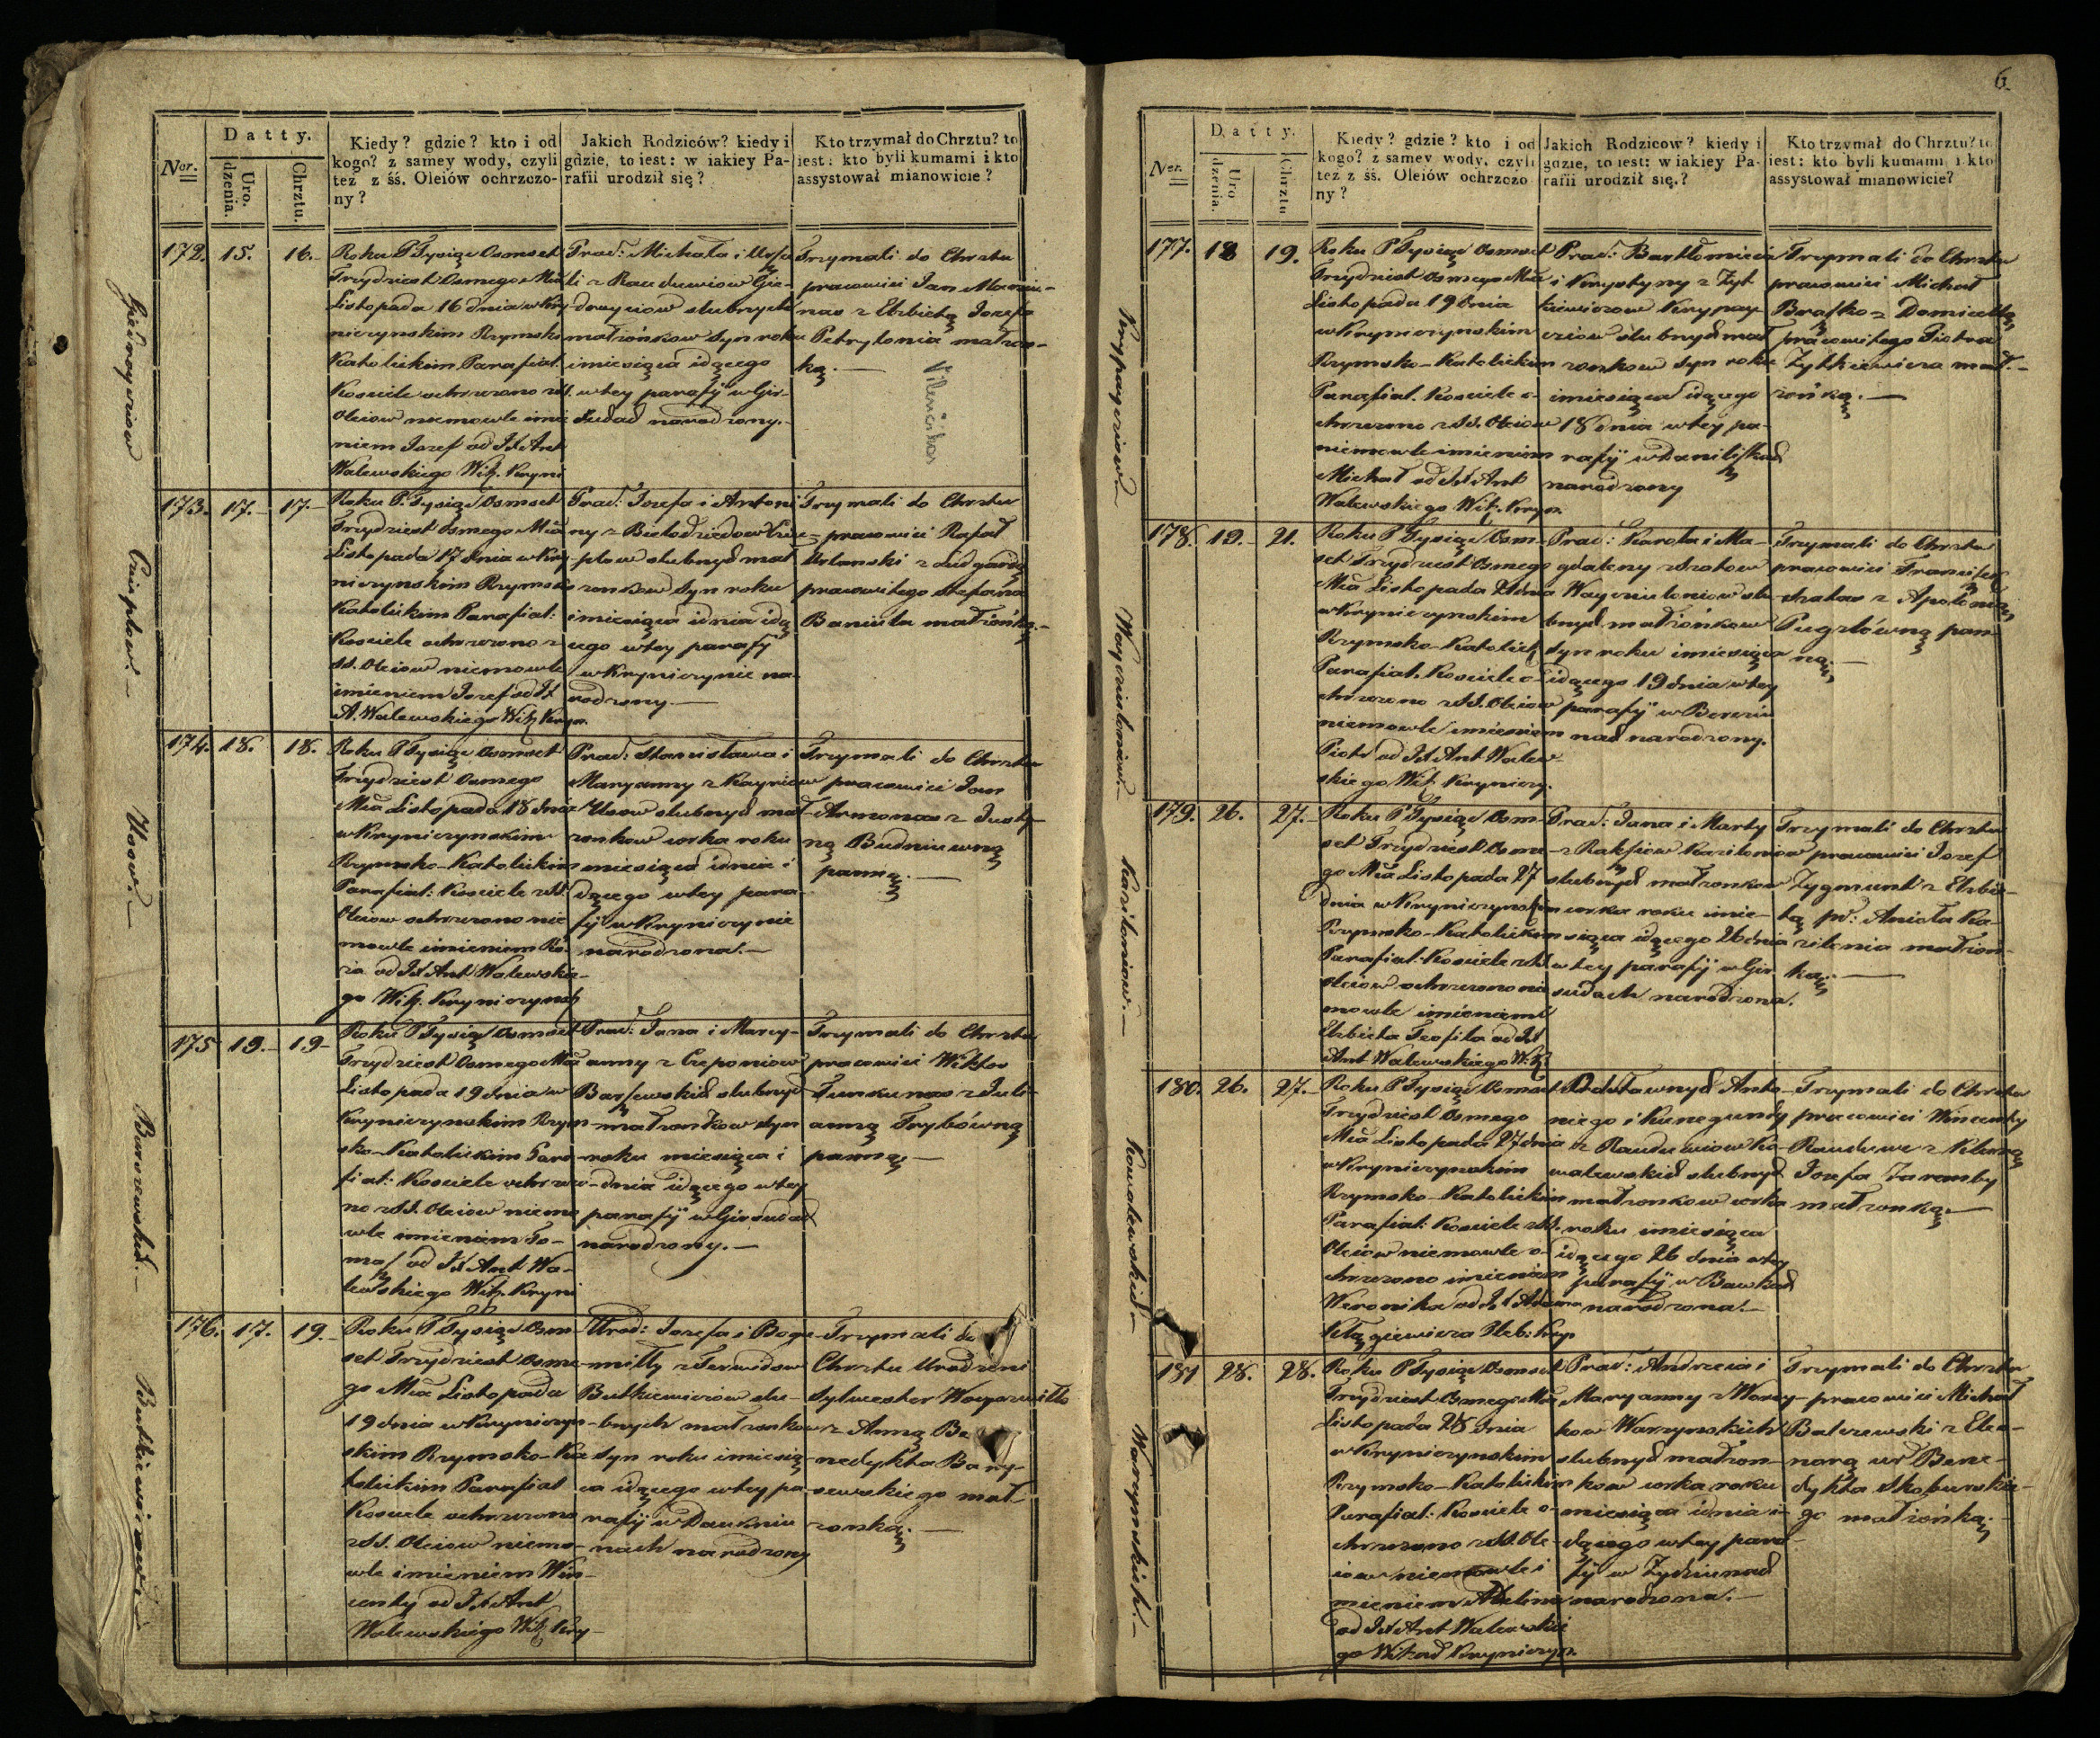 Ner.
Datty.
Uro-
dzenia.
Chrztu.
Kiedy? gdzie? kto i od
kogo? z samey wody, czyli
też z śś. Oleiów ochrzczo-
ny?
Jakich Rodziców? kiedy i
gdzie, to iest: w iakiey Pa-
rafii urodził się?
Kto trzymał do Chrztu? to
iest: kto byli kumami i kto
assystował mianowicie?
172. 15. 16.
Roku P Tysiąc Osmset
Trzydziest Osmego Mca
Listopada 16 dnia w Kry-
niczynskim Rzymsko
Katolickim Parafial.
Kosciele ochrzczono z SS.
Oleiow niemowle imie
niem Jozef od JX Ant
Walewskiego Wik. Kryni
Prac: Michała i Urszu
li z Raudwiow Gie-
droyciow slubnych
małżonkow syn roku
i miesiąca idącego
w tey parafij w Gir-
sudach narodzony.
Trzymali do Chrztu
pracowici Jan
z Elzbietą Jozefa
Petrylonia małzon-
ką.
173. 17. 17.
Roku P. Tysiąc Osmset
Trzydziest Osmego Mca
Listopada 17 dnia w Kry
niczynskim Rzymsko
Katolickim Parafial:
Kosciele ochrzczono z
SS. Oleiow niemowle
imieniem Jozef od JX
A. Walewskiego Wik Kryn.
Prac: Jozefa i Antoni
ny z Bielodziedow
slubnych mał
zonkow syn roku
i miesiąca i dnia idą
cego w tey parafij
w Kryniczynie na
rodzony.
Trzymali do Chrztu
pracowici Rafał
Urlanski z Ludgardą
pracowitego Stefana
Baniula małżonką.
174. 18. 18.
Roku P Tysiąc Osmset
Trzydziest Osmego
Mca Listopada 18 dnia
w Kryniczynskim
Rzymsko-Katolickim
Parafial: Kosciele z SS.
Oleiow ochrzczono nie
mowle imieniem Ro-
zia od JX Ant Walewskie-
go Wik. Kryniczynsk
Prac: Stanisława i
Maryanny z Kayriow
Usow slubnych mał-
zonkow corka roku
miesiąca i dnia i
dącego w tey para
fij w Kryniczynie
narodzona.
Trzymali do Chrztu
pracowici Jan
Armonas z Justy-
ną Budniuwną
panną.
175 19. 19
Roku P Tysiąc Osmset
Trzydziest Osmego Mca
Listopada 19 dnia w
Kryniczynskim Rzym-
sko-Katolickim Para-
fial: Kosciele ochrzczo-
no z SS. Oleiow niemo
wle imieniem To-
masz od JX Ant Wa-
lewskiego Wik. Kryni
Prac: Jana i Mary-
anny z Czeponiow
slubnych
małzonkow syn
roku miesiąca i
dnia idącego w tey
parafij w Girsudach
narodzony.
Trzymali do Chrztu
pracowici Wiktor
Tunkunas z Juli-
anną Trybówną
panną.
176. 17. 19.
Roku P Tysiąc Osm
set Trzydziest Osme-
go Mca Listopada
19 dnia w Kryniczyn-
skim Rzymsko-Ka
tolickim Parafial
Kosciele ochrzczono
z SS. Oleiow niemo-
wle imieniem Win-
centy od JX Ant
Walewskiego Wik Kry-
Urod: Jozefa i Bogu-
milly z Terwidow
Butkiewiczow slu-
bnych małzonkow
syn roku i miesią-
ca idącego w tey pa-
rafij w Daukniu
nach narodzony
Trzymali do
Chrztu Urodzeni
Sylwester Woyszwiłło
z Anną Be
nedykta Bany-
sewskiego mał-
zonką.
Giedroyciow
Usow.
Butkiewiczow.
6.
Ner.
Datty.
Uro
dzenia.
Chrztu
Kiedy? gdzie? kto i od
kogo? z samey wody, czyli
też z śś. Oleiów ochrzczo
ny?
Jakich Rodzicow? kiedy i
gdzie, to iest: w iakiey Pa-
rafii urodził się.?
Kto trzymał do Chrztu? to
iest: kto byli kumami i kto
assystował mianowicie?
177. 18 19.
Roku P Tysiąc Osmset
Trzydziest Osmego Mca
Listopada 19 dnia
w Kryniczynskim
Rzymsko-Katolickim
Parafial. Kosciele o-
chrzczono z SS. Oleiow
niemowle imieniem
Michał od JX Ant
Walewskiego Wik. Kryn.
Prac: Bartłomieia
i Krystyny z Zyt
kiewiczow Krypay-
cziow slubnych mał
zonkow syn roku
i miesiąca idącego
18 dnia w tey pa-
rafij w Daniliszkach
narodzony
Trzymali do Chrztu
pracowici Michał
Braszko z Domicellą
pracowitego Piotra
Zytkiewicza mał-
żonką.
178. 19. 21.
Roku P Tysiąc Osm-
set Trzydziest Osmego
Mca Listopada 21 dnia
w Kryniczynskim
Rzymsko-Katolick
Parafial. Kosciele o-
chrzczono z SS. Oleiow
niemowle imieniem
Piotr od JX Ant Walew-
skiego Wik Kryniczy.
Prac: Karola i Ma-
gdaleny z Szatow
Woycieloniow slu
bnych małżonkow
syn roku i miesiąca
idącego 19 dnia w tey
parafij w Berżiu
nach narodzony.
Trzymali do Chrztu
pracowici Franciszek
Szatas z Apolonią
Pugzlówną pan-
ną.
179. 26. 27.
Roku P Tysiąc Osm-
set Trzydziest Osme-
go Mca Listopada 27
dnia w Kryniczynskim
Rzymsko-Katolickim
Parafial: Kosciele z SS.
Oleiow ochrzczono nie
mowle imieniami
Elzbieta Teofila od JX
Ant Walewskiego Wik
Prac: Jana i Marty
z Rakszow Kaziloniow
slubnych małzonkow
corka roku i mie-
siąca idącego 26 dnia
w tey parafij w Gir
sudach narodzona.
Trzymali do Chrztu
pracowici Jozef
Zygmunt z Elzbie-
tą pr: Anioła Ka-
zilenia małzon-
ką.
180. 26. 27.
Roku P Tysiąc Osmset
Trzydziest Osmego
Mca Listopada 27 dnia
w Kryniczynskim
Rzymsko-Katolickim
Parafial: Kosciele z SS.
Oleiow niemowle o-
chrzczono imieniem
Weronika od JX Adama
Prac Sławnych Anto-
niego i Kunegundy
z Raudwiow Ko-
walewskich slubnych
małzonkow corka
roku i miesiąca
idącego 26 dnia w tey
parafij w Bawkach
narodzona.
Trzymali do Chrztu
pracowici Wincenty
Raudwe z
Jozefa Zaremby
małzonką.
181 28. 28.
Roku P Tysiąc Osmset
Trzydziest Osmego Mca
Listopada 28 dnia
w Kryniczynskim
Rzymsko-Katolickim
Parafial: Kosciele o-
chrzczono z SS. Ole-
iow niemowle i
mieniem Adelina
od JX Ant Walewskie
go Wikar Kryniczyn.
Prac: Andrzeia i
Maryanny z Woyey-
kow Warzynskich
slubnych małzon-
kow corka roku
miesiąca i dnia i-
dącego w tey para-
fij w Zydziunach
narodzona.
Trzymali do Chrztu
pracowici Michał
Balczewski z Eleo-
norą ur Bene-
dykta Skoburskie-
go małżonką.
Krypayciow.
Woycieloniow.
Kaziloniow.
Kowalewskich
Warzynskich.